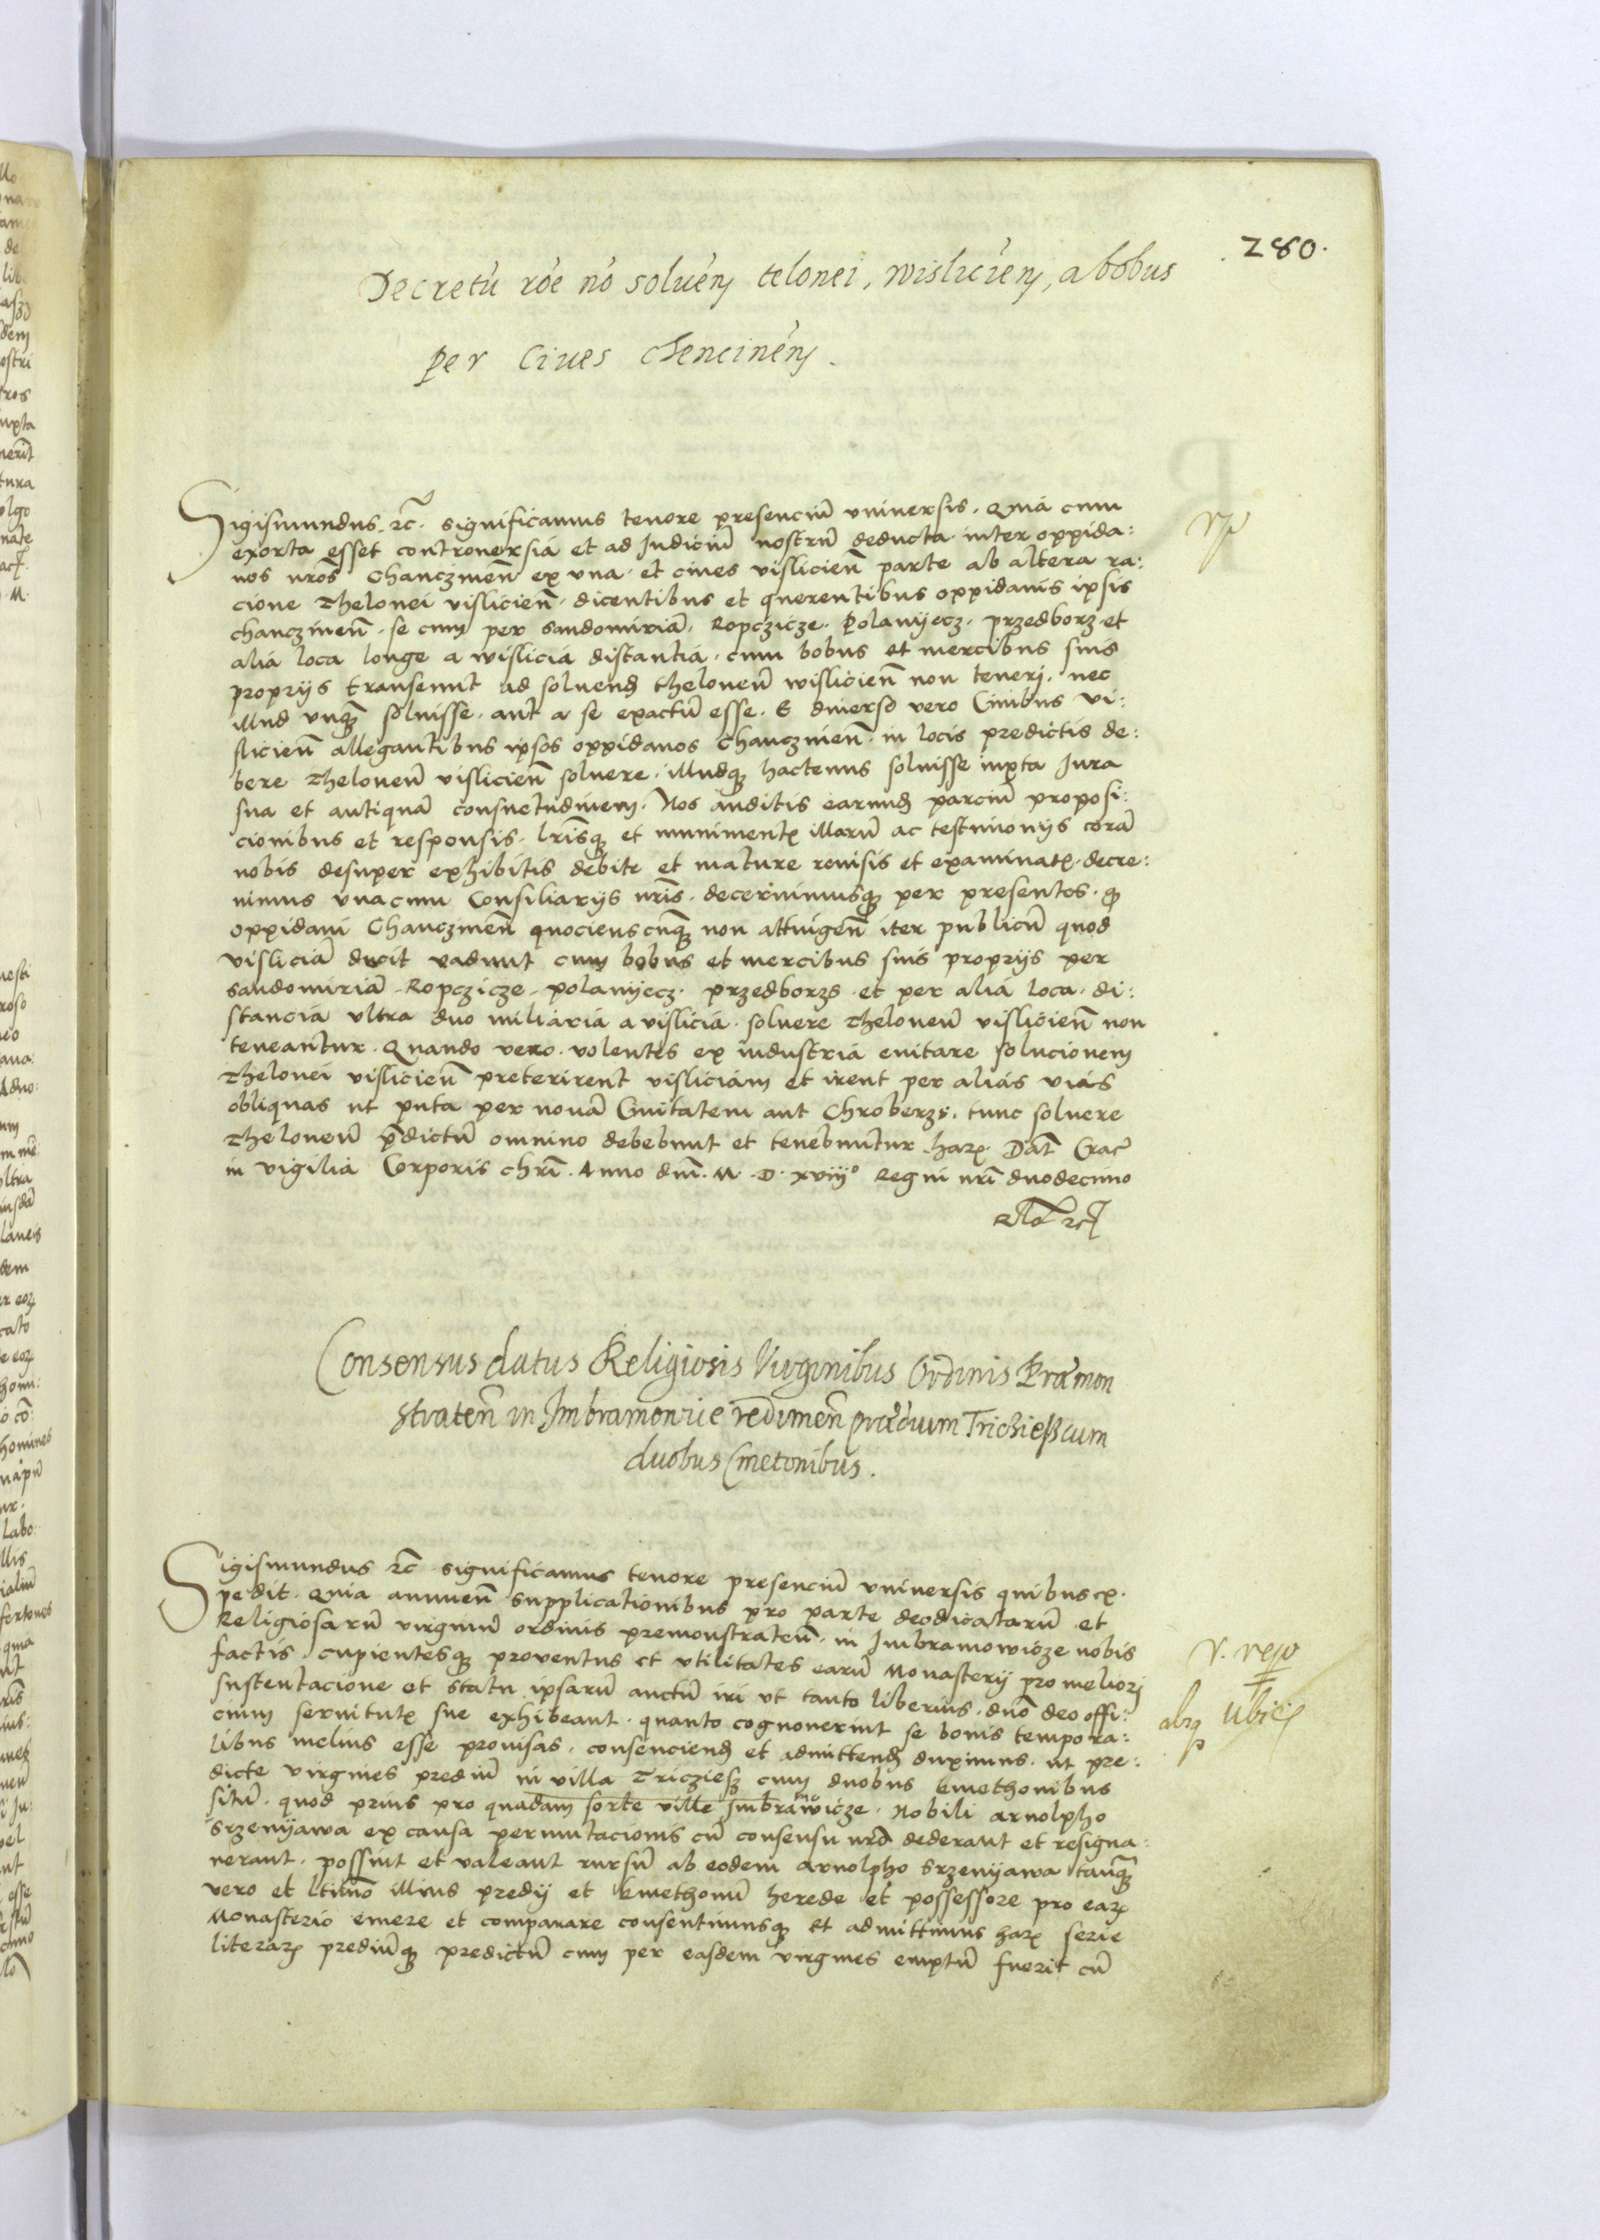 280.
Decretũ rõe nõ soluẽn telonei, wisliciẽn, a bobus
per Ciues chencinẽn.
Sigismundus, ꝛc̃. significamus tenore presenciũ vniuersis. Quia cum
exorta esset controuersia et ad Judiciũ nostrũ deducta inter oppida:
nos nros̃ Chanczinen̄ ex vna. et ciues visliciēn parte ab altera ra:
cione Thelonei visliciēn. dicentibus et querentibus oppidanis ipsis
chanczinen̄. se cum per Sandomiriã. Ropczicze. Polanyecz. przedborz. et
alia loca longe a wislicia distantia. cum bobus et mercibus suis
proprijs transeunt ad soluend thelonеũ wisliciēn non teneri. nec
illud vnq̃ soluisse. aut a se exactũ esse. E diuerso vero Ciuibus vi:
sliciēn allegantibus ipsos oppidanos Chanczinen̄. in locis predictis de:
bere Theloneũ visliciēn soluere. illudqꝫ hactenus soluisse iuxta Jura
sua et antiquã consuetudinem. Nos auditis earund parciũ proposi:
cionibus et responsis. lrisqꝫ et munimentꝭ illarũ ac testimonijs corã
nobis desuper exhibitis debite et mature reuisis et examinatꝭ. decre:
uimus vnacum Consiliarijs nris̃. decernimusqꝫ per presentes. ꝙ
oppidani Chanczinen̄ quocienscunqꝫ non attingen̄ iter publicũ quod
visliciã ducit vadunt cum bobus et mercibus suis proprijs per
Sandomiriã. Ropczicze. polanyecz. przedborzs. et per alia loca. di:
stancia vltra duo miliaria a vislicia. soluere Theloneũ visliciēn non
teneantur. Quando vero. volentes ex industria euitare solucionem
Thelonei visliciēn preterirent visliciam et irent per alias vias
obliquas ut puta per nouã Ciuitatem aut Chroberzs. tunc soluere
Theloneũ p̃dictũ omnino debebunt et tenebuntur harꝝ. Dat̃ Crac̃
in vigilia Corporis chrĩ. Anno dnĩ. M. D. xviijº Regni nrĩ duodecimo
Rlõ ꝛc̃
Consensus datus Religiosis Virginibus Ordinis Præmon
straten̄ in Imbramonicie redimen̄ prædium Trichiesz cum
duobus Cmetonibus.
Sigismundus ꝛc̃ significamus tenore presenciũ vniuersis quibus exꝭ.
pedit. Quia annuen̄ supplicationibus pro parte deodicatarũ et
Religiosarũ virginũ ordinis premonstraten̄. in Imbramowicze nobis
factis cupientesqꝫ prouentus et vtilitates earũ Monasterij pro meliori
sustentacione et statu ipsarũ auctũ iri ut tanto liberius. dnõ deo offi:
cium seruitutꝭ sue exhibeant. quanto cognouerint se bonis tempora:
libus melius esse prouisas. consenciend et admittend duximus. ut pre:
dicte virgines prediũ in villa Tricziesz cum duobus kmethonibus
sitũ. quod prius pro quadam sorte ville Imbramowicze. Nobili arnolpho
Srzenyawa ex causa permutacionis cũ consensu nrõ dederant et resigna:
uerant. possint et valeant rursũ ab eodem arnolpho Srzenyawa tanq̃
vero et ltimõ illius predij et kmethonũ herede et possessore pro earꝝ
Monasterio emere et comparare consentimusqꝫ et admittimus harꝝ serie
literarꝝ prediũqꝫ predictũ cum per easdem virgines emptũ fuerit cũ